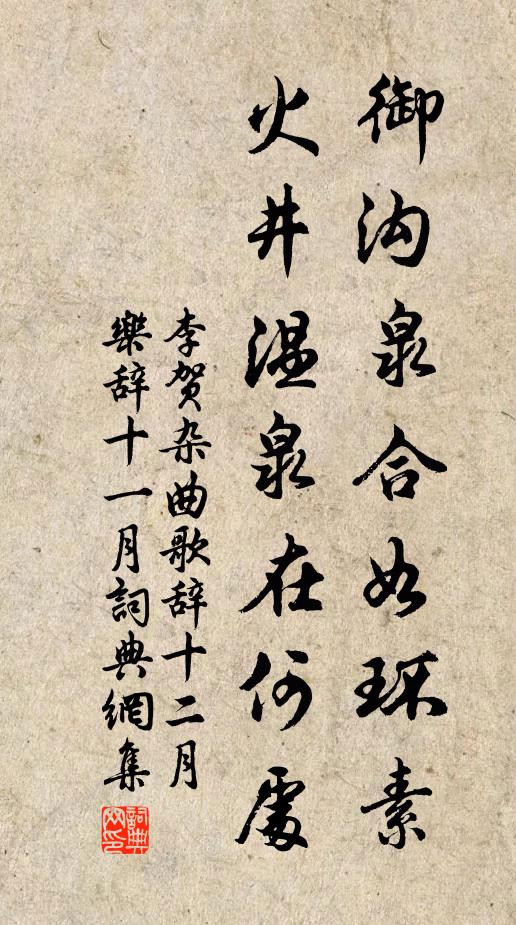 御沟泉合如环素
火井温泉在何處
李贺杂曲歌辞十二月
樂辞十一月詞典網集
詞典
网印